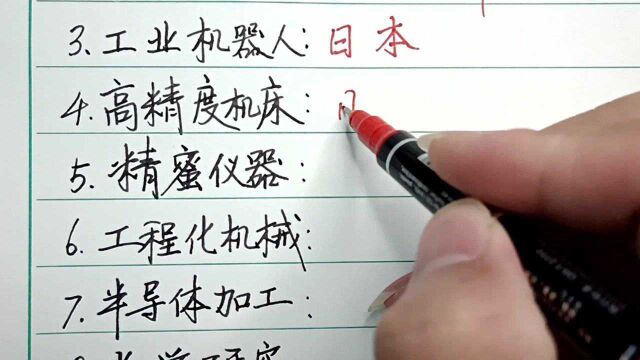 3.工业机器人:日本
4.高精度机床:
5.精蜜仪器:
6.工程化机械:
7.半导体加工: